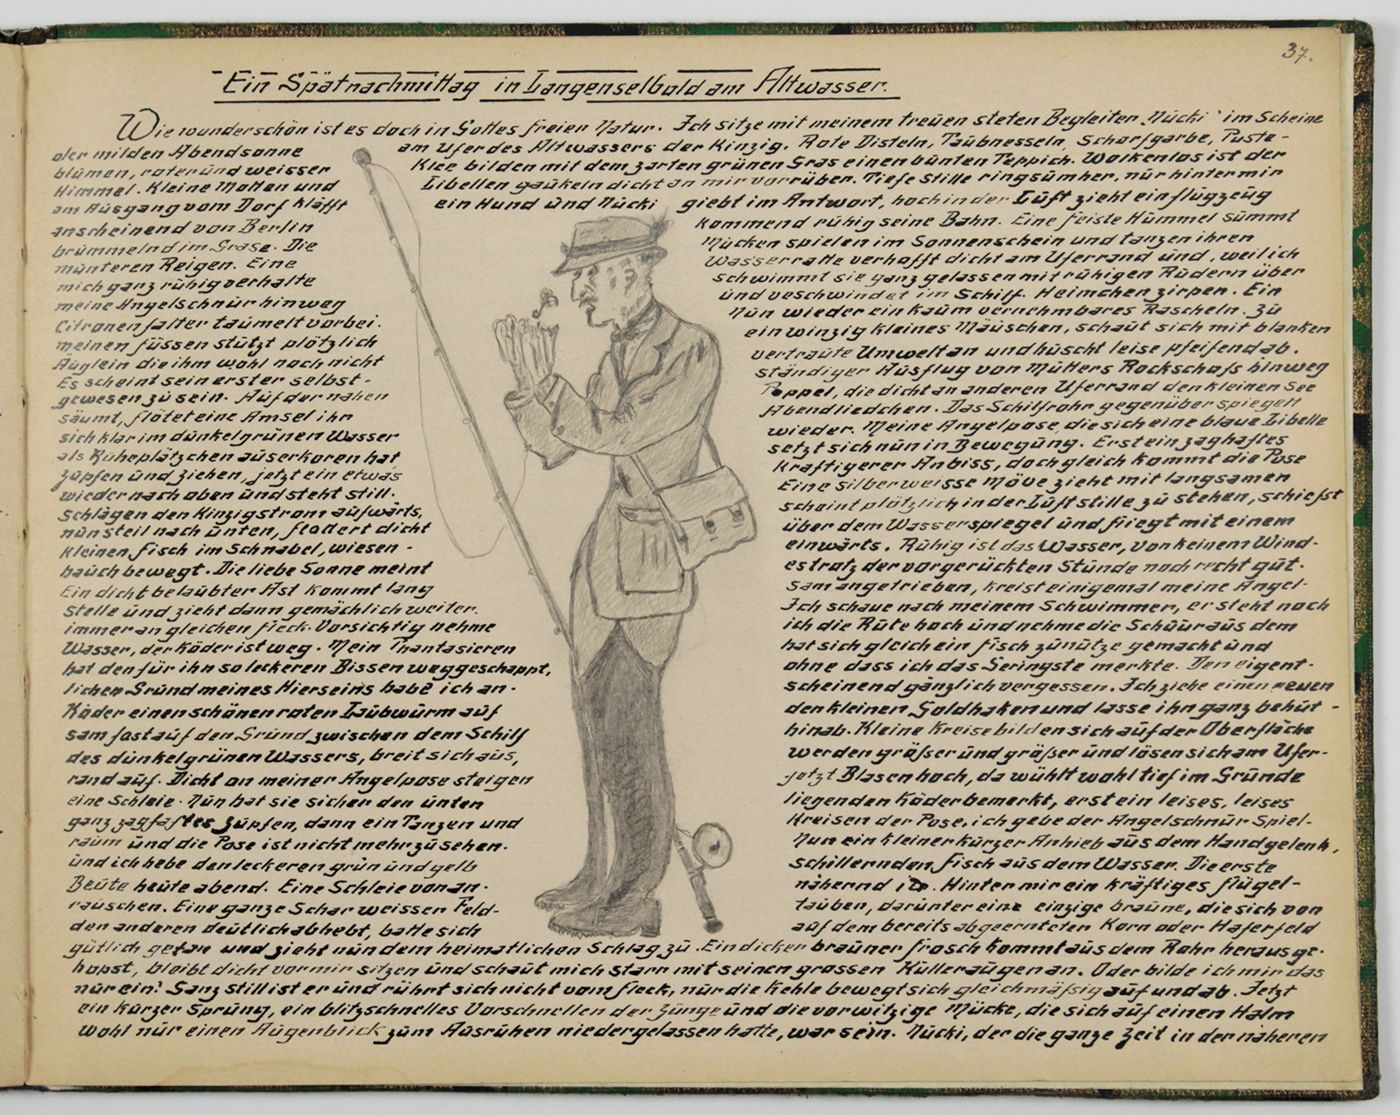 37.
Ein Spätnachmittag in Langenselbold am Altwasser.
Wie wunderschön ist es doch in Gottes freier Natur. Ich sitze mit meinem treuen steten Begleiter „Nücki“ im Scheine
der milden Abendsonne am Ufer des Altwassers der Kinzig. Rote Disteln, Taubnesseln, Scharfgarbe, Puste-
blumen, roter und weisser Klee bilden mit dem zarten grünen Gras einen bunten Teppich. Wolkenlos ist der
Himmel. Kleine Motten und Libellen gaukeln dicht an mir vorrüber. Tiefe Stille ringsumher, nur hinter mir
am Ausgang vom Dorf kläfft ein Hund und Nücki giebt im Antwort, hoch in der Luft zieht ein Flugzeug
anscheinend von Berlin kommend ruhig seine Bahn. Eine feiste Hummel summt
brummelnd im Grase. Die Mücken spielen im Sonnenschein und tanzen ihren
munteren Reigen. Eine Wasserratte verhofft dicht am Uferrand und, weil ich
mich ganz ruhig verhalte schwimmt sie ganz gelassen mit ruhigen Rudern über
meine Angelschnur hinweg und veschwindet im Schilf. Heimchen zirpen. Ein
Citronenfalter taumelt vorbei. Nun wieder ein kaum vernehmbares Rascheln. Zu
meinen Füssen stutzt plötzlich ein winzig kleines Mäuschen, schaut sich mit blanken
Äuglein die ihm wohl noch nicht vertraute Umwelt an und huscht leise pfeifend ab.
Es scheint sein erster selbst- ständiger Ausflug von Mutters Rockschoss hinweg
gewesen zu sein. Auf der nahen Pappel, die dicht an anderen Uferrand den kleinen See
säumt, flötet eine Amsel ihr Abendliedchen. Das Schilfrohr gegenüber spiegelt
sich klar im dunkelgrünen Wasser wieder. Meine Angelpose, die sich eine blaue Libelle
als Ruheplätzchen auserkoren hat setzt sich nun in Bewegung. Erst ein zaghaftes
zupfen und ziehen, jetzt ein etwas kräftigerer Anbiss, doch gleich kommt die Pose
wieder nach oben und steht still. Eine silberweisse Möve zieht mit langsamen
Schlägen den Kinzigstrom aufwärts, scheint plötzlich in der Luft stille zu stehen, schiesst
nun steil nach unten, flattert dicht über dem Wasserspiegel und fliegt mit einem
kleinen Fisch im Schnabel, wiesen- einwärts. Ruhig ist das Wasser, von keinem Wind-
hauch bewegt. Die liebe Sonne meint es trotz der vorgerückten Stunde noch recht gut.
Ein dicht belaubter Ast kommt lang sam angetrieben, kreist einigemal meine Angel-
stelle und zieht dann gemächlich weiter. Ich schaue nach meinem Schwimmer, er steht noch
immer an gleichen Fleck. Vorsichtig nehme ich die Rute hoch und nehme die Schuur aus dem
Wasser, der Köder ist weg. Mein Phantasieren hat sich gleich ein Fisch zunutze gemacht und
hat den für ihn so leckeren Bissen weggeschappt, ohne dass ich das Geringste merkte. Den eigent-
lichen Grund meines Hierseins habe ich an- scheinend gänzlich vergessen. Ich ziehe einen neuen
Köder einen schönen roten Laubwurm auf den kleinen Goldhaken und lasse ihn ganz behut-
sam fast auf den Grund zwischen dem Schilf hinab. Kleine Kreise bilden sich auf der Oberfläche
des dunkelgrünen Wassers, breit sich aus, werden größer und größer und lösen sich am Ufer-
rand auf. Dicht an meiner Angelpose steigen jetzt Blasen hoch, da wühlt wohl tief im Grunde
eine Schleie. Nun hat sie sicher den unten liegenden Köder bemerkt, erst ein leises, leises
ganz zagfaftes zupfen, dann ein Tanzen und Kreisen der Pose, ich gebe der Angelschnur Spiel-
raum und die Pose ist nicht mehr zu sehen. Nun ein kleiner kurzer Anhieb aus dem Handgelenk,
und ich hebe den leckeren grün und gelb schillernden Fisch aus dem Wasser. Die erste
Beute heute abend. Eine Schleie von an- nähernd Hinter mir ein kräftiges Flügel-
rauschen. Eine ganze Schar weisser Feld- tauben, darunter eine einzige braune, die sich von
den anderen deutlich abhebt, hatte sich auf dem bereits abgeernteten Korn oder Haferfeld
gütlich getan und zieht nun dem heimatlichen Schlag zu. Ein dicker brauner Frosch kommt aus dem Rohr herausge-
hopst, bleibt dicht vor mir sitzen und schaut mich starr mit seinen grossen Kulleraugen an. Oder bilde ich mir das
nur ein? Ganz still ist er und rührt sich nicht vom Fleck, nur die Kehle bewegt sich gleichmäßig auf und ab. Jetzt
ein kurzer Sprung, ein blitzschnelles Vorschnellen der Zunge und die vorwitzige Mücke, die sich auf einen Halm
wohl nur einen Augenblick zum Ausruhen niedergelassen hatte, war sein. Nücki, der die ganze Zeit in der näheren